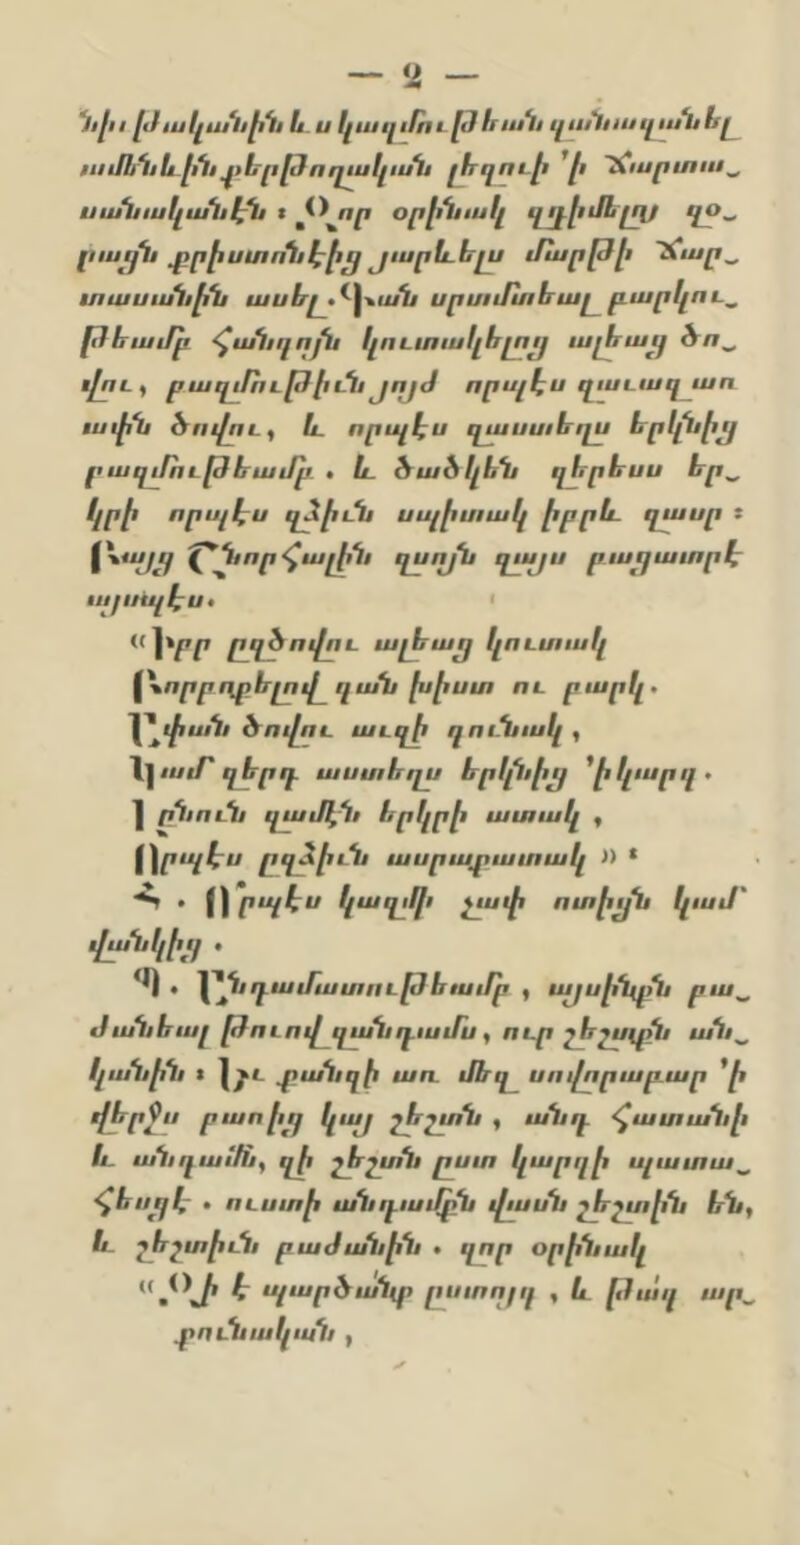 — 2 —
նիւ թականին և ս կազմութեան զանազանել
ամենևին քերթողական լեզուի 'ի Ճարտա֊
սանականէն ։ Զոր օրինակ զդիմելոյ զօ֊
րացն քրիստոնէից յարևելս մարթի Ճար֊
տասանին ասել . Գան սրտմտեալ բարկու֊
թեամբ հանգոյն կուտակելոց ալեաց ծո֊
վու, բազմութիւն յոյժ որպէս զաւազ առ
ափին ծովու, և որպէս զաստեղս երկնից
բազմութեամբ . և ծածկեն զերեսս եր֊
կրի որպէս զձիւն սպիտակ իբրև զասր ։
Բայց Շնորհալին զսոյն զայս բացատրէ
այսպէս.
«Իբր ըզծովու ալեաց կուտակ
Բորբոքելով գան խիստ ու բարկ.
Ափան ծովու աւզի գունակ ,
Կամ զերդ աստեղս երկնից 'ի կարգ .
Լընուն զամէն երկրի ատակ ,
Որպէս ըզձիւն ասրաքատակ » ։
Հ . Որպէս կազմի չափ ոտիցն կամ
վանկից .
Պ . Անդամատութեամբ , այսինքն բա֊
ժանեալ թուով զանդամս, ուր շեշտքն ան֊
կանին ։ Եւ քանզի առ մեզ սովորաբար 'ի
վերջս բառից կայ շեշտն , անդ հատանի
և անդամն, զի շեշտն ըստ կարգի պատա֊
հեսցէ . ուստի անդամքն վասն շեշտին են,
և շեշտիւն բաժանին . զոր օրինակ
«Զի է պարծանք ըստոյգ , և թագ ար֊
քունական ,